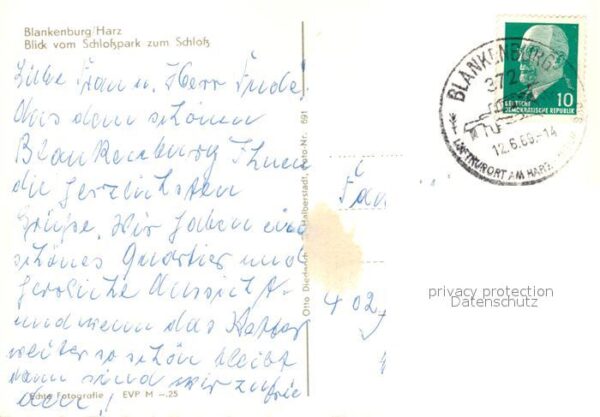 Blankenburg/Harz
Blick vom Schloßpark zum Schloß
Liebe Frau u. Herr Fude.
Aus dem schönen
Blankenburg Ihnen
die herzlichsten
Grüße. Wir haben ein
schönes Quartier und
herrliche Aussicht
und wenn das Wetter
weiter so schön bleibt
dann sind wir zufrie
den!
Echte Fotografie EVP M -.25
Otto Halberstadt, Foto-Nr. 691
BLANKENBURG
372
12.6.69.-14
LUFTKURORT AM HARZ
DEUTSCHE
DEMOKRATISCHE REPUBLIK
10
402
privacy protection
Datenschutz